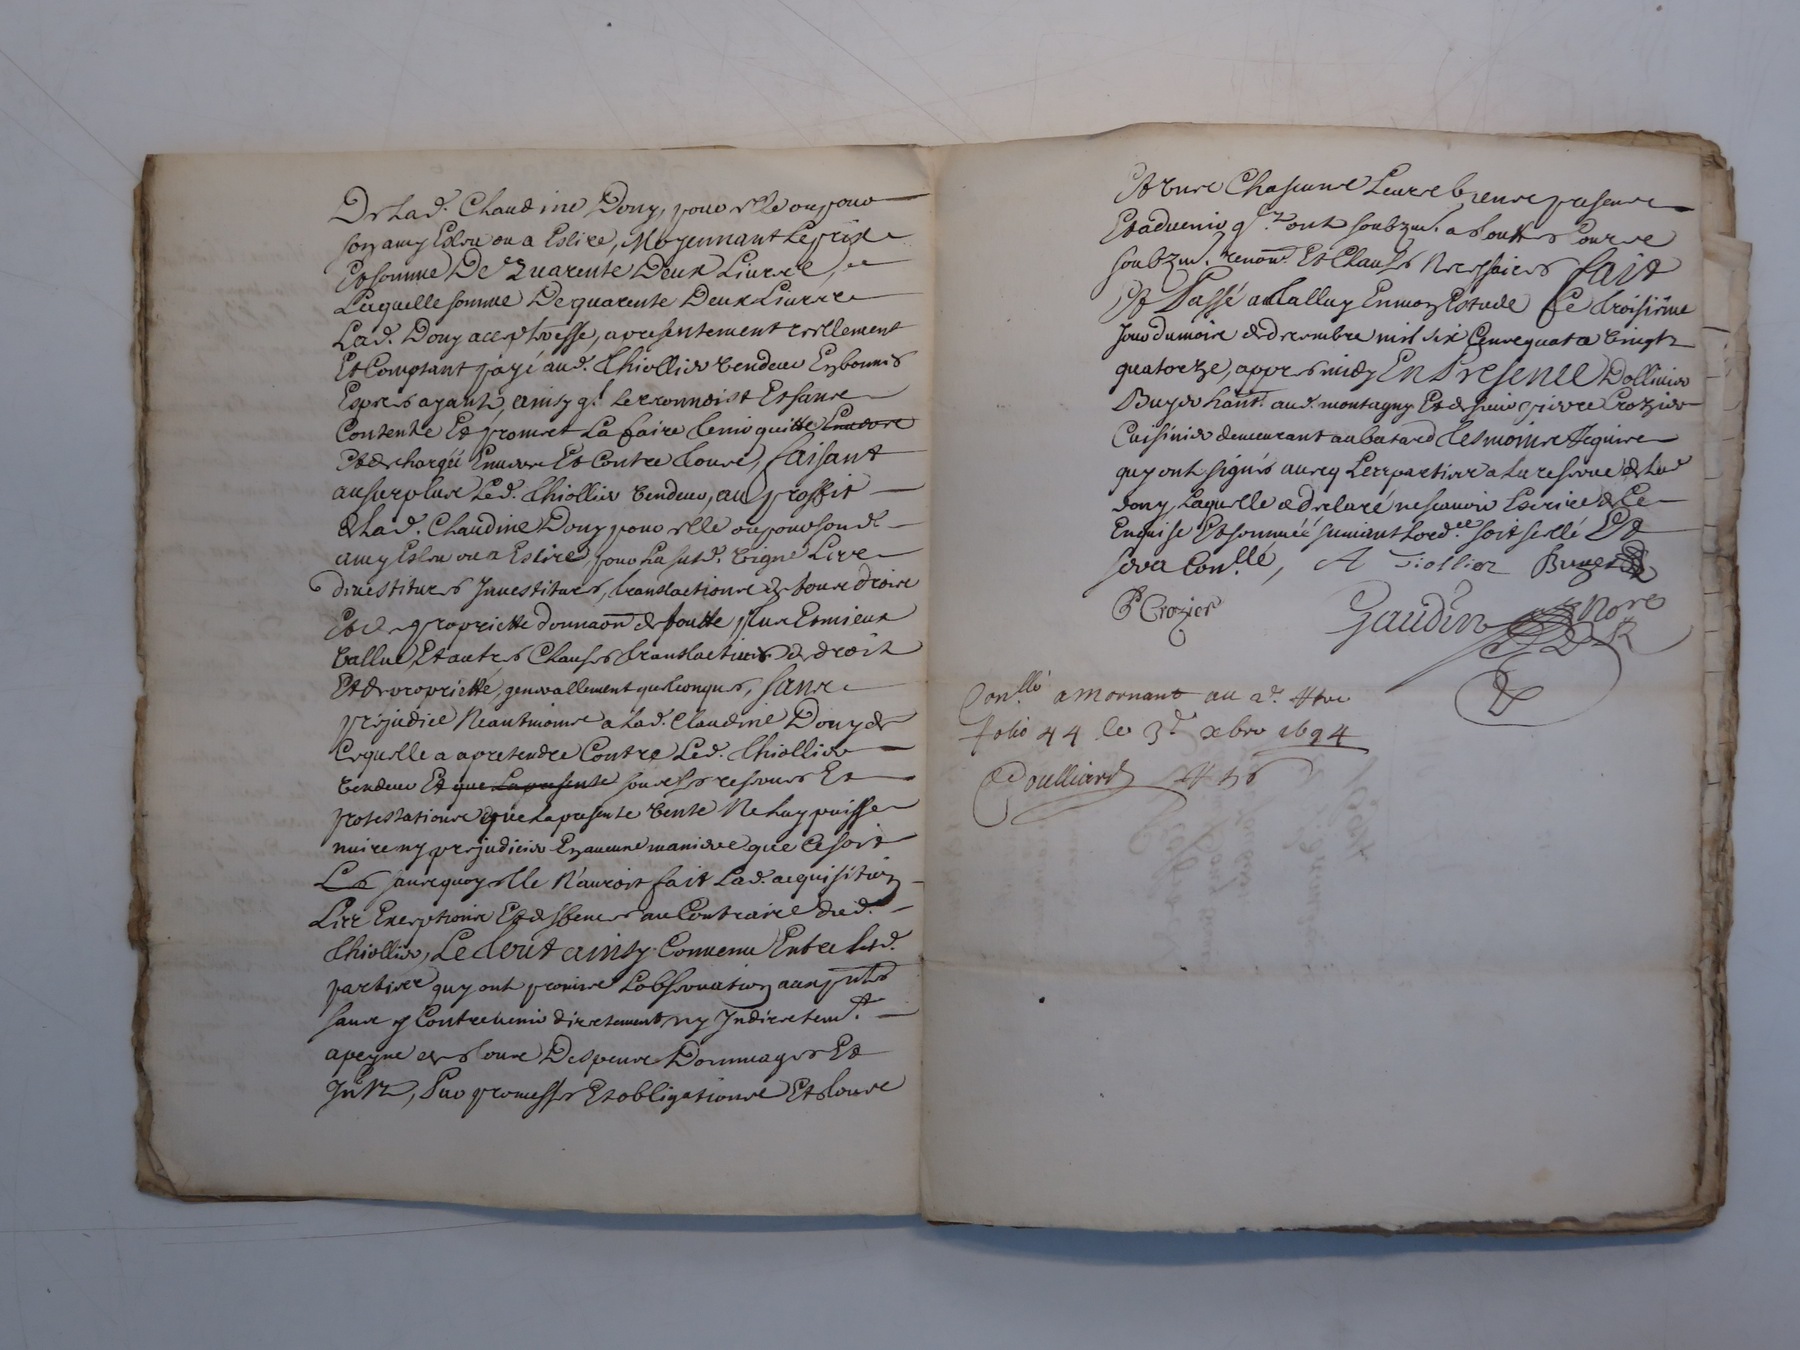 De lad. Claudine Dony, pour elle ou pour
son amy Esleu ou a Eslire, Moyennant Le prix
Et somme De Quarente Deux Livres,
Laquelle somme De quarente Deux Livres
Lad. Dony acceptresse, a presentement reellement
Et Comptant payé aud. Thiollier vendeur En bonnes
Especes ayant, ainsy q.l Le reconnoist Et sanre
Contente Et promet La faire tenir quitte Envers
Et deschargée Envers Et Contre tous, faisant
au surplus Led. Thiollier vendeur, au proffit
de lad. Claudine Dony pour elle ou pour sond.
amy Esleu ou a Eslire, pour La susd. vigne Les
divestitures Investitures, translations de tous droits
Et de proprietté donnaon de toutte plus Et mieux
vallue Et autres Clauses translatives de droit
Et de proprietté, generallement quelconques, sans
prejudice Neantmoins a Lad. Claudine Dony de
Ce quelle a a pretendre Contre Led. Thiollier
vendeur Et que La presente soubs les reserves Et
protestations que La presente vente Ne Luy puisse
nuire ny prejudicier En aucune maniere que Ce soit
sans quoy elle N'auroit fait Lad. acquisition
Les Exceptions Et desfences au Contraire dud.
Thiollier, Le tout ainsy Convenu Entre lesd.
parties quy ont promis L'observation aux pntes
sans y Contrevenir directement ny Indirectem.t
a peyne de tous Despens Dommages Et
Intz, Par promesses Et obligations Et tous
Et Uns Chascuns Leurs biens presents
Et advenir q. ont soubzm. a toutes Cours
soubzm. renon. Et Clauses Necessaires fait
Et Passé a Talluy En mon Estude Le troisieme
Jour du mois de decembre mil six Cens quatre vingtz
quatorze, appres midy En Presence D'ollivier
Buyer hant. aud. montagny Et de sieur pierre Crozier
Cuisinier demeurant au batard tesmoins Requis
quy ont signés avecq Les parties a La reserve de Lad
Dony, Laquelle a declaré ne scavoir Escrire de Ce
Enquise Et sommée suivant Lord.ce soit scellé Et
sera Con.llé, A Tiollier Buyer
P Crozier Gaudin Nore
Con.llé a Mornant au 2d. Rre
folio 44 le 3e xbre 1694